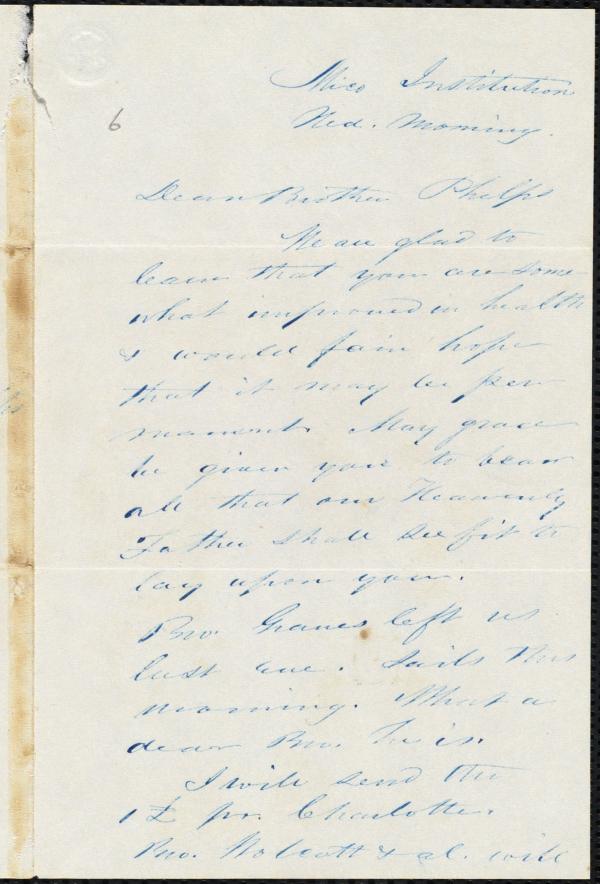 6
Mico Institution
Wed. Morning.
Dear Brother Phelps
We are glad to
learn that you are some-
what improved in health
& would fain hope
that it may be per
manent. May grace
be given you to bear
all that our Heavenly
Father shall see fit to
lay upon you.
Bro. Graves left us
last eve. Sails this
morning. What a
dear Bro. he is.
I will send the
1£ pr. Charlotte.
Bro. Wolcott & al. will